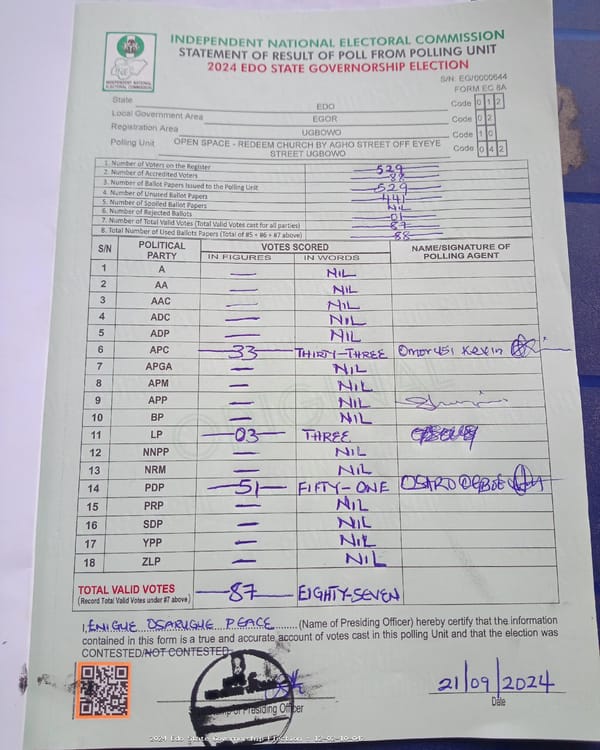 INDEPENDENT NATIONAL ELECTORAL COMMISSION
STATEMENT OF RESULT OF POLL FROM POLLING UNIT
2024 EDO STATE GOVERNORSHIP ELECTION
INEC
INDEPENDENT NATIONAL ELECTORAL COMMISSION
S/N: EG/0000644
FORM EC 8A
State EDO Code 0 1 2
Local Government Area EGOR Code 0 2
Registration Area UGBOWO Code 1 0
Polling Unit OPEN SPACE - REDEEM CHURCH BY AGHO STREET OFF EYEYE STREET UGBOWO Code 0 4 2
1. Number of Voters on the Register 529
2. Number of Accredited Voters 88
3. Number of Ballot Papers Issued to the Polling Unit 529
4. Number of Unused Ballot Papers 441
5. Number of Spoiled Ballot Papers NIL
6. Number of Rejected Ballots 01
7. Number of Total Valid Votes (Total Valid Votes cast for all parties) 87
8. Total Number of Used Ballots Papers (Total of #5 + #6 + #7 above) 88
S/N POLITICAL PARTY VOTES SCORED NAME/SIGNATURE OF POLLING AGENT
IN FIGURES IN WORDS
1 A — NIL
2 AA — NIL
3 AAC — NIL
4 ADC — NIL
5 ADP — NIL
6 APC 33 THIRTY-THREE Kevin
7 APGA — NIL
8 APM — NIL
9 APP — NIL
10 BP — NIL
11 LP 03 THREE
12 NNPP — NIL
13 NRM — NIL
14 PDP 51 FIFTY-ONE
15 PRP — NIL
16 SDP — NIL
17 YPP — NIL
18 ZLP — NIL
TOTAL VALID VOTES 87 EIGHTY-SEVEN
(Record Total Valid Votes under #7 above)
I, ENIGHE OSARUGUE PEACE (Name of Presiding Officer) hereby certify that the information
contained in this form is a true and accurate account of votes cast in this polling Unit and that the election was
CONTESTED/NOT CONTESTED.
21/09/2024
of Presiding Officer
Date